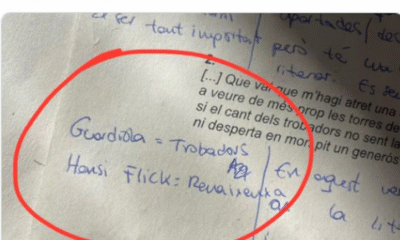 a ser tant important
aportades/des
però té una
literar. Es
2.
[...] Que val que m'hagi atret una
a veure de més prop les torres de
si el cant dels trobadors no sent la
ni desperta en mon pit un generós
Guardiola = Trobadors
Hansi Flick = Renaixença
En aquest
a la lit